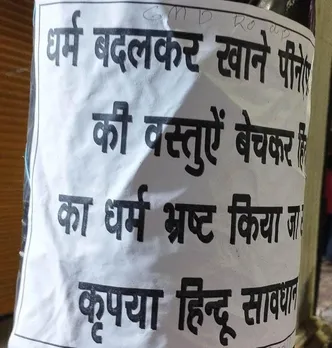 धर्म बदलकर खाने पीने
की वस्तुऐं बेचकर
का धर्म भ्रष्ट किया जा
कृपया हिन्दू सावधान